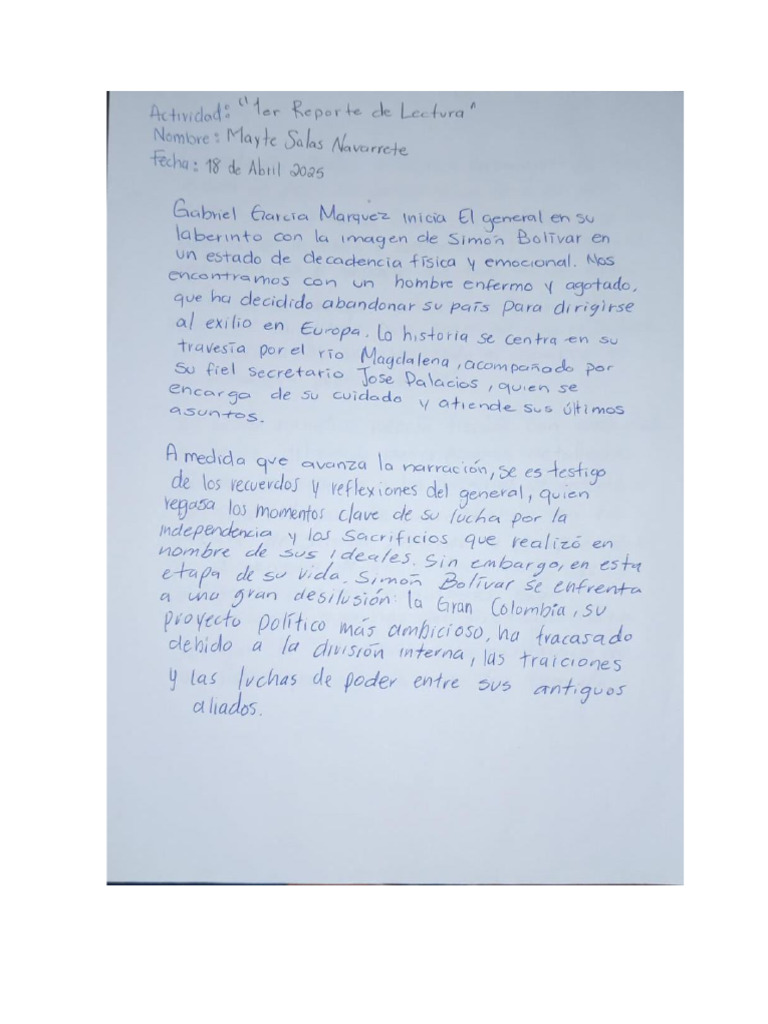 Actividad: "1er Reporte de Lectura"
Nombre: Mayte Salas Navarrete
Fecha: 18 de Abril 2025
Gabriel García Marquez inicia El general en su
laberinto con la imagen de Simón Bolívar en
un estado de decadencia física y emocional. Nos
encontramos con un hombre enfermo y agotado,
que ha decidido abandonar su país para dirigirse
al exilio en Europa. La historia se centra en su
travesía por el río Magdalena, acompañado por
su fiel secretario Jose Palacios, quien se
encarga de su cuidado y atiende sus últimos
asuntos.
A medida que avanza la narración, se es testigo
de los recuerdos y reflexiones del general, quien
regasa los momentos clave de su lucha por la
independencia y los sacrificios que realizó en
nombre de sus ideales. Sin embargo, en esta
etapa de su vida. Simón Bolívar se enfrenta
a una gran desilusión: la Gran Colombia, su
proyecto político más ambicioso, ha fracasado
debido a la división interna, las traiciones
y las luchas de poder entre sus antiguos
aliados.